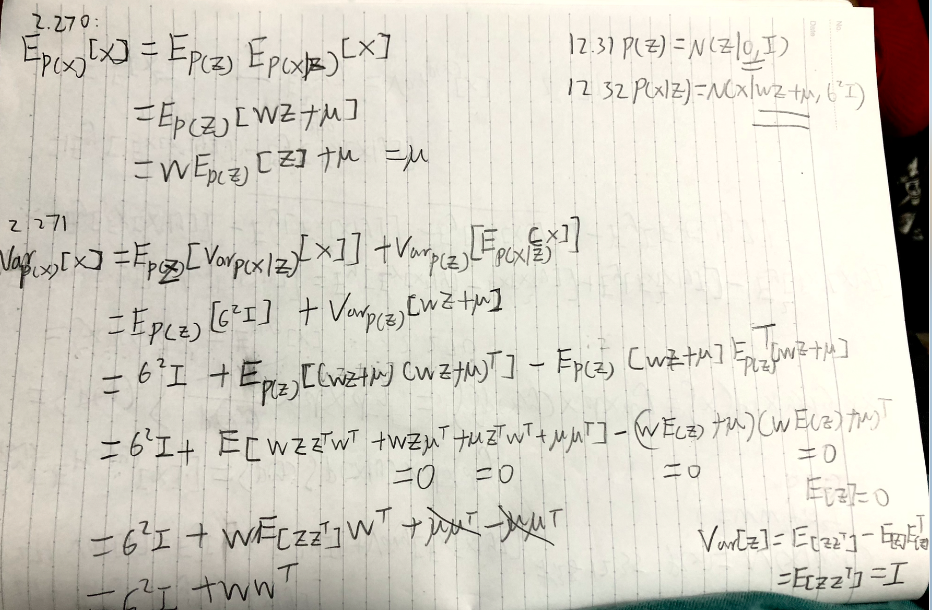 2.270:
E_{P(x)}[x] = E_{P(z)} E_{P(x|z)}[x]
= E_{P(z)}[wz+μ]
= wE_{P(z)}[z] + μ = μ
12.31 P(z) = N(z|0, I)
12.32 P(x|z) = N(x|wz+μ, 6²I)
2 271
Var_{P(x)}[x] = E_{P(z)}[Var_{P(x|z)}[x]] + Var_{P(z)}[E_{P(x|z)}[x]]
= E_{P(z)}[6²I] + Var_{P(z)}[wz+μ]
= 6²I + E_{P(z)}[(wz+μ)(wz+μ)ᵀ] - E_{P(z)}[wz+μ] Eᵀ_{P(z)}[wz+μ]
= 6²I + E[wzzᵀwᵀ + wzμᵀ + μzᵀwᵀ + μμᵀ] - (wE(z)+μ)(wE(z)+μ)ᵀ
=0 =0 =0 =0
E[z]=0
= 6²I + wE[zzᵀ]wᵀ + μμᵀ - μμᵀ
Var[z] = E[zzᵀ] - E[z]E[z]ᵀ
= E[zzᵀ] = I
= 6²I + wwᵀ